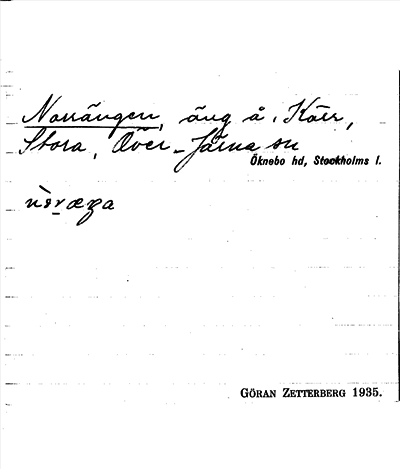 Norrängen, äng å. Kärr,
Stora, Över-Järna sn
Öknebo hd, Stockholms l.
GÖRAN ZETTERBERG 1935.